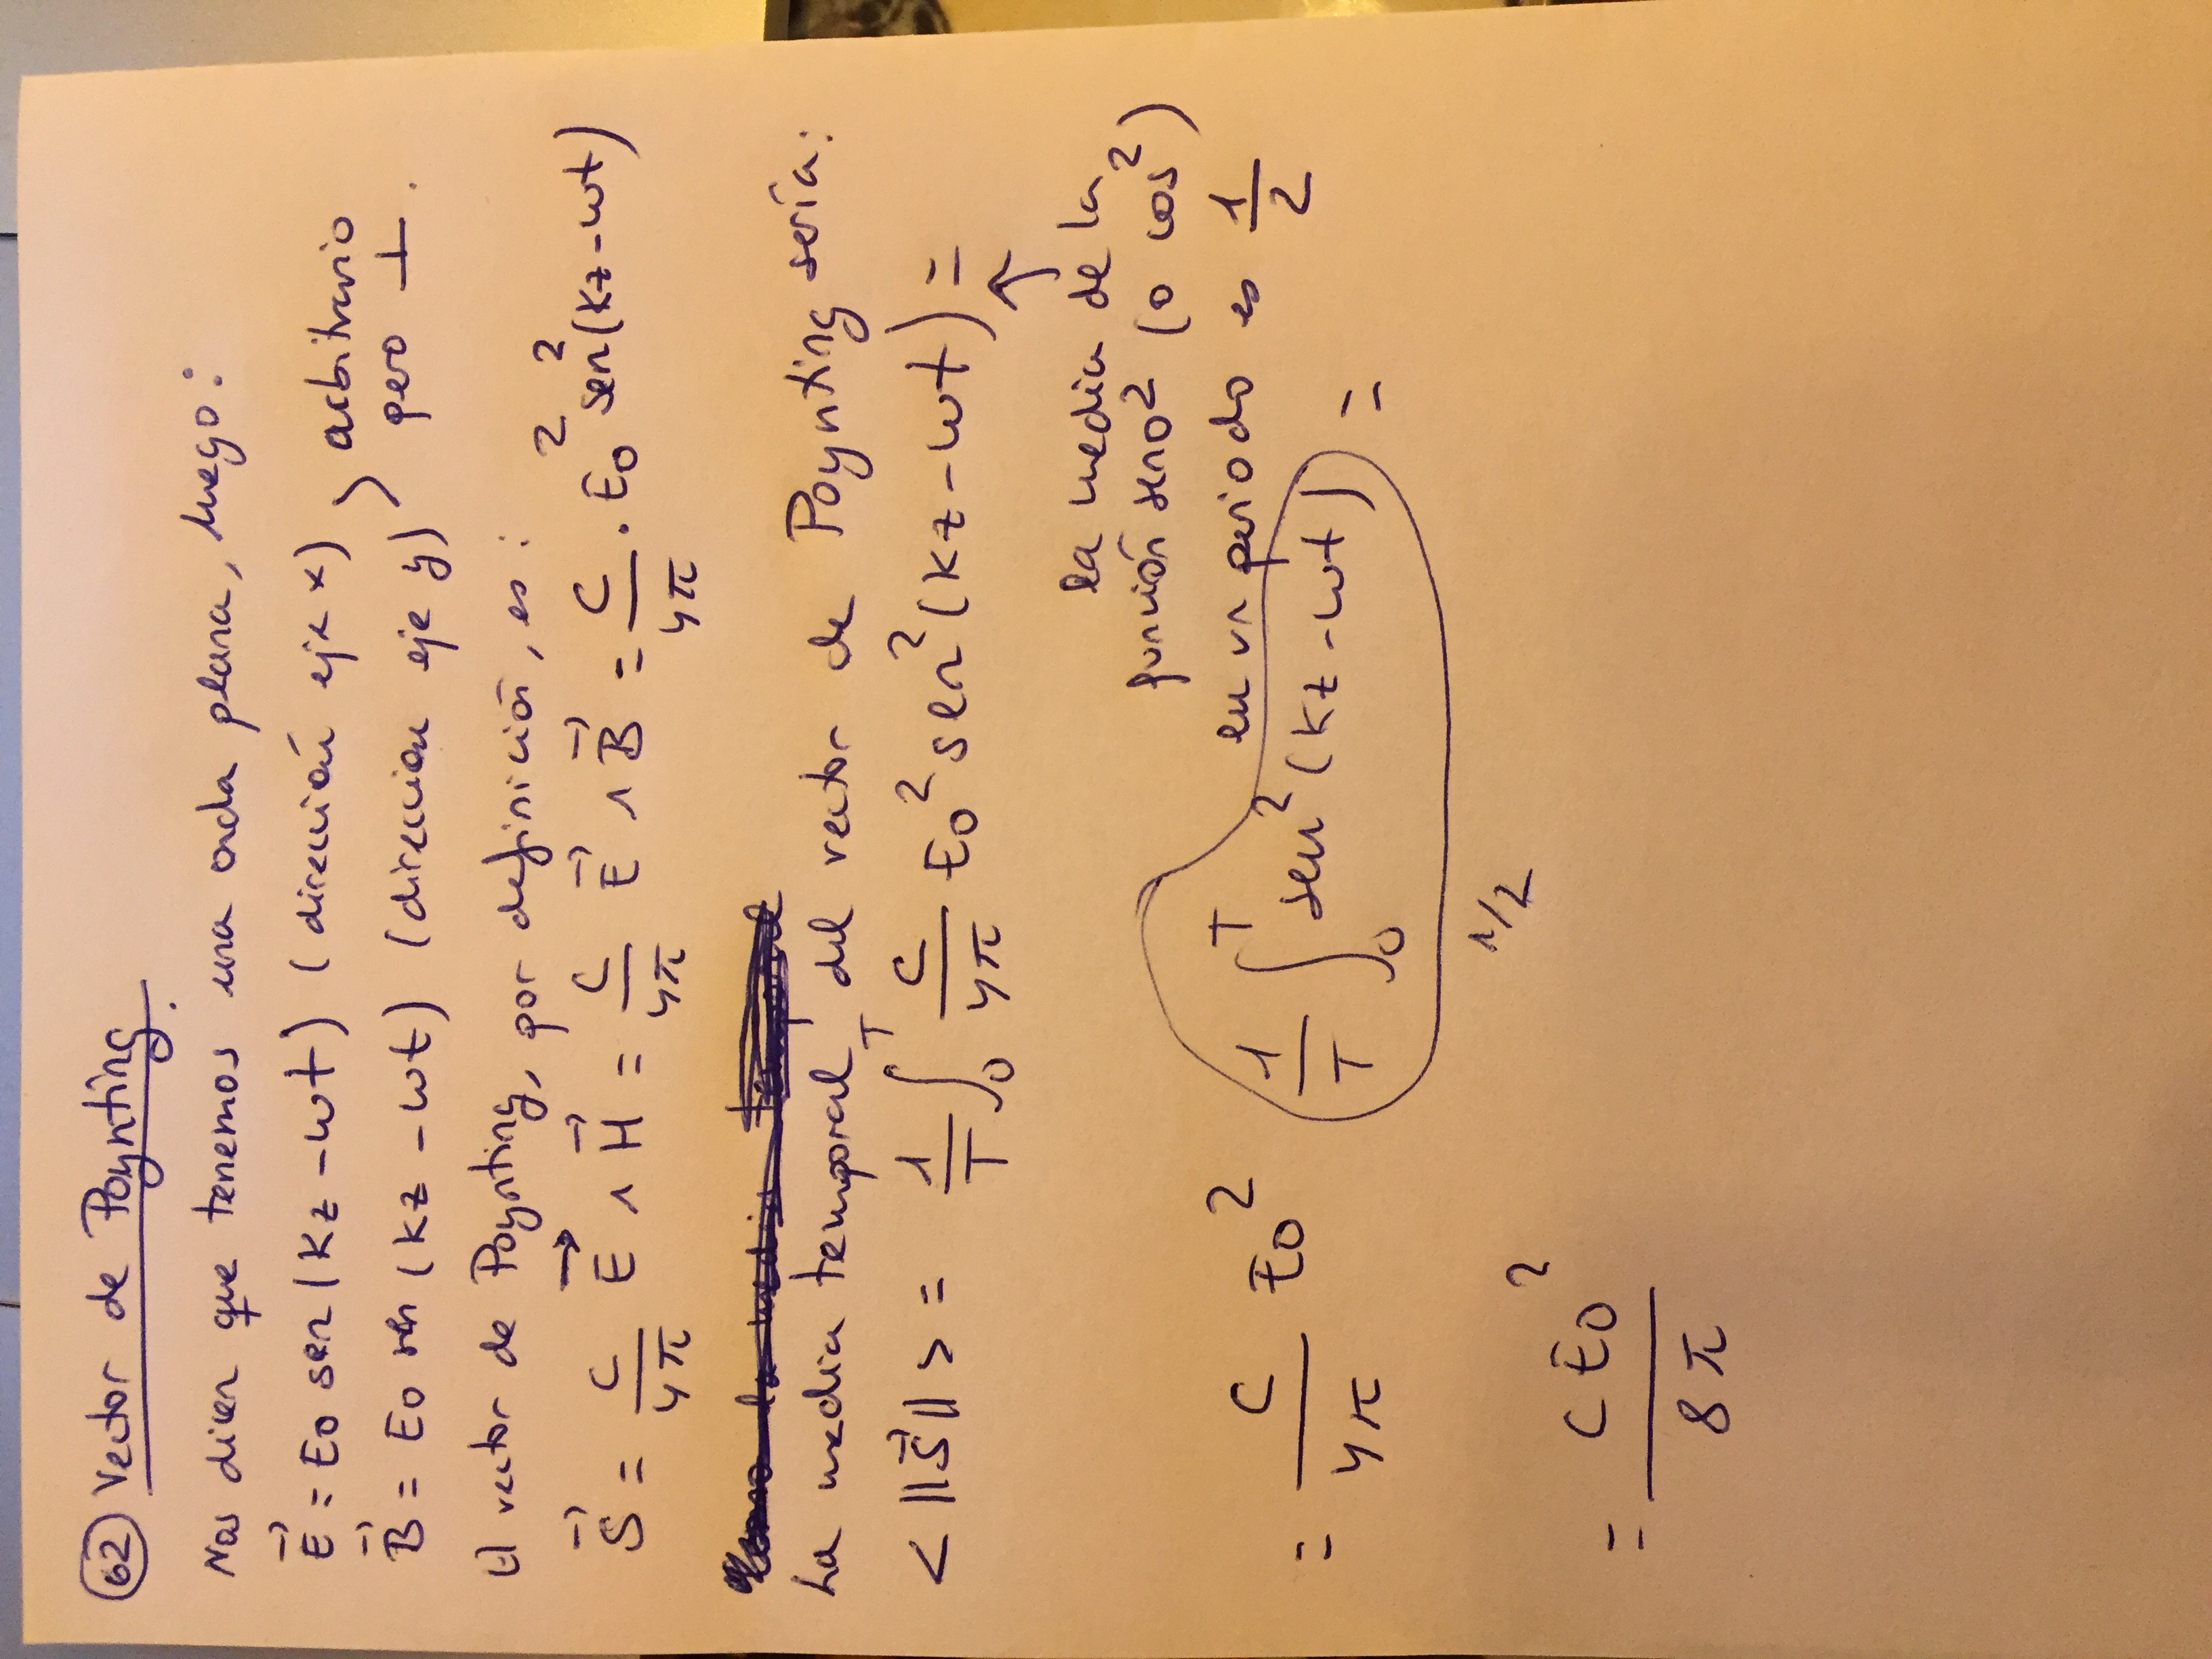 62 Vector de Poynting.
Nos dicen que tenemos una onda plana, luego:
E⃗ = E₀ sen (kz - ωt) (dirección eje x) } arbitrario
B⃗ = E₀ sen (kz - ωt) (direccion eje y) } pero ⊥.
El vector de Poynting, por definición, es:
S⃗ = c/4π E⃗ ∧ H⃗ = c/4π E⃗ ∧ B⃗ = c/4π · E₀² sen²(kz - ωt)
La media temporal del vector de Poynting sería:
< ||S⃗|| > = 1/T ∫₀ᵀ c/4π E₀² sen²(kz - ωt) =
↑
la media de la
función seno² (o cos²)
en un periodo es 1/2
= c/4π E₀² 1/T ∫₀ᵀ sen²(kz - ωt) =
1/2
= c E₀² / 8π